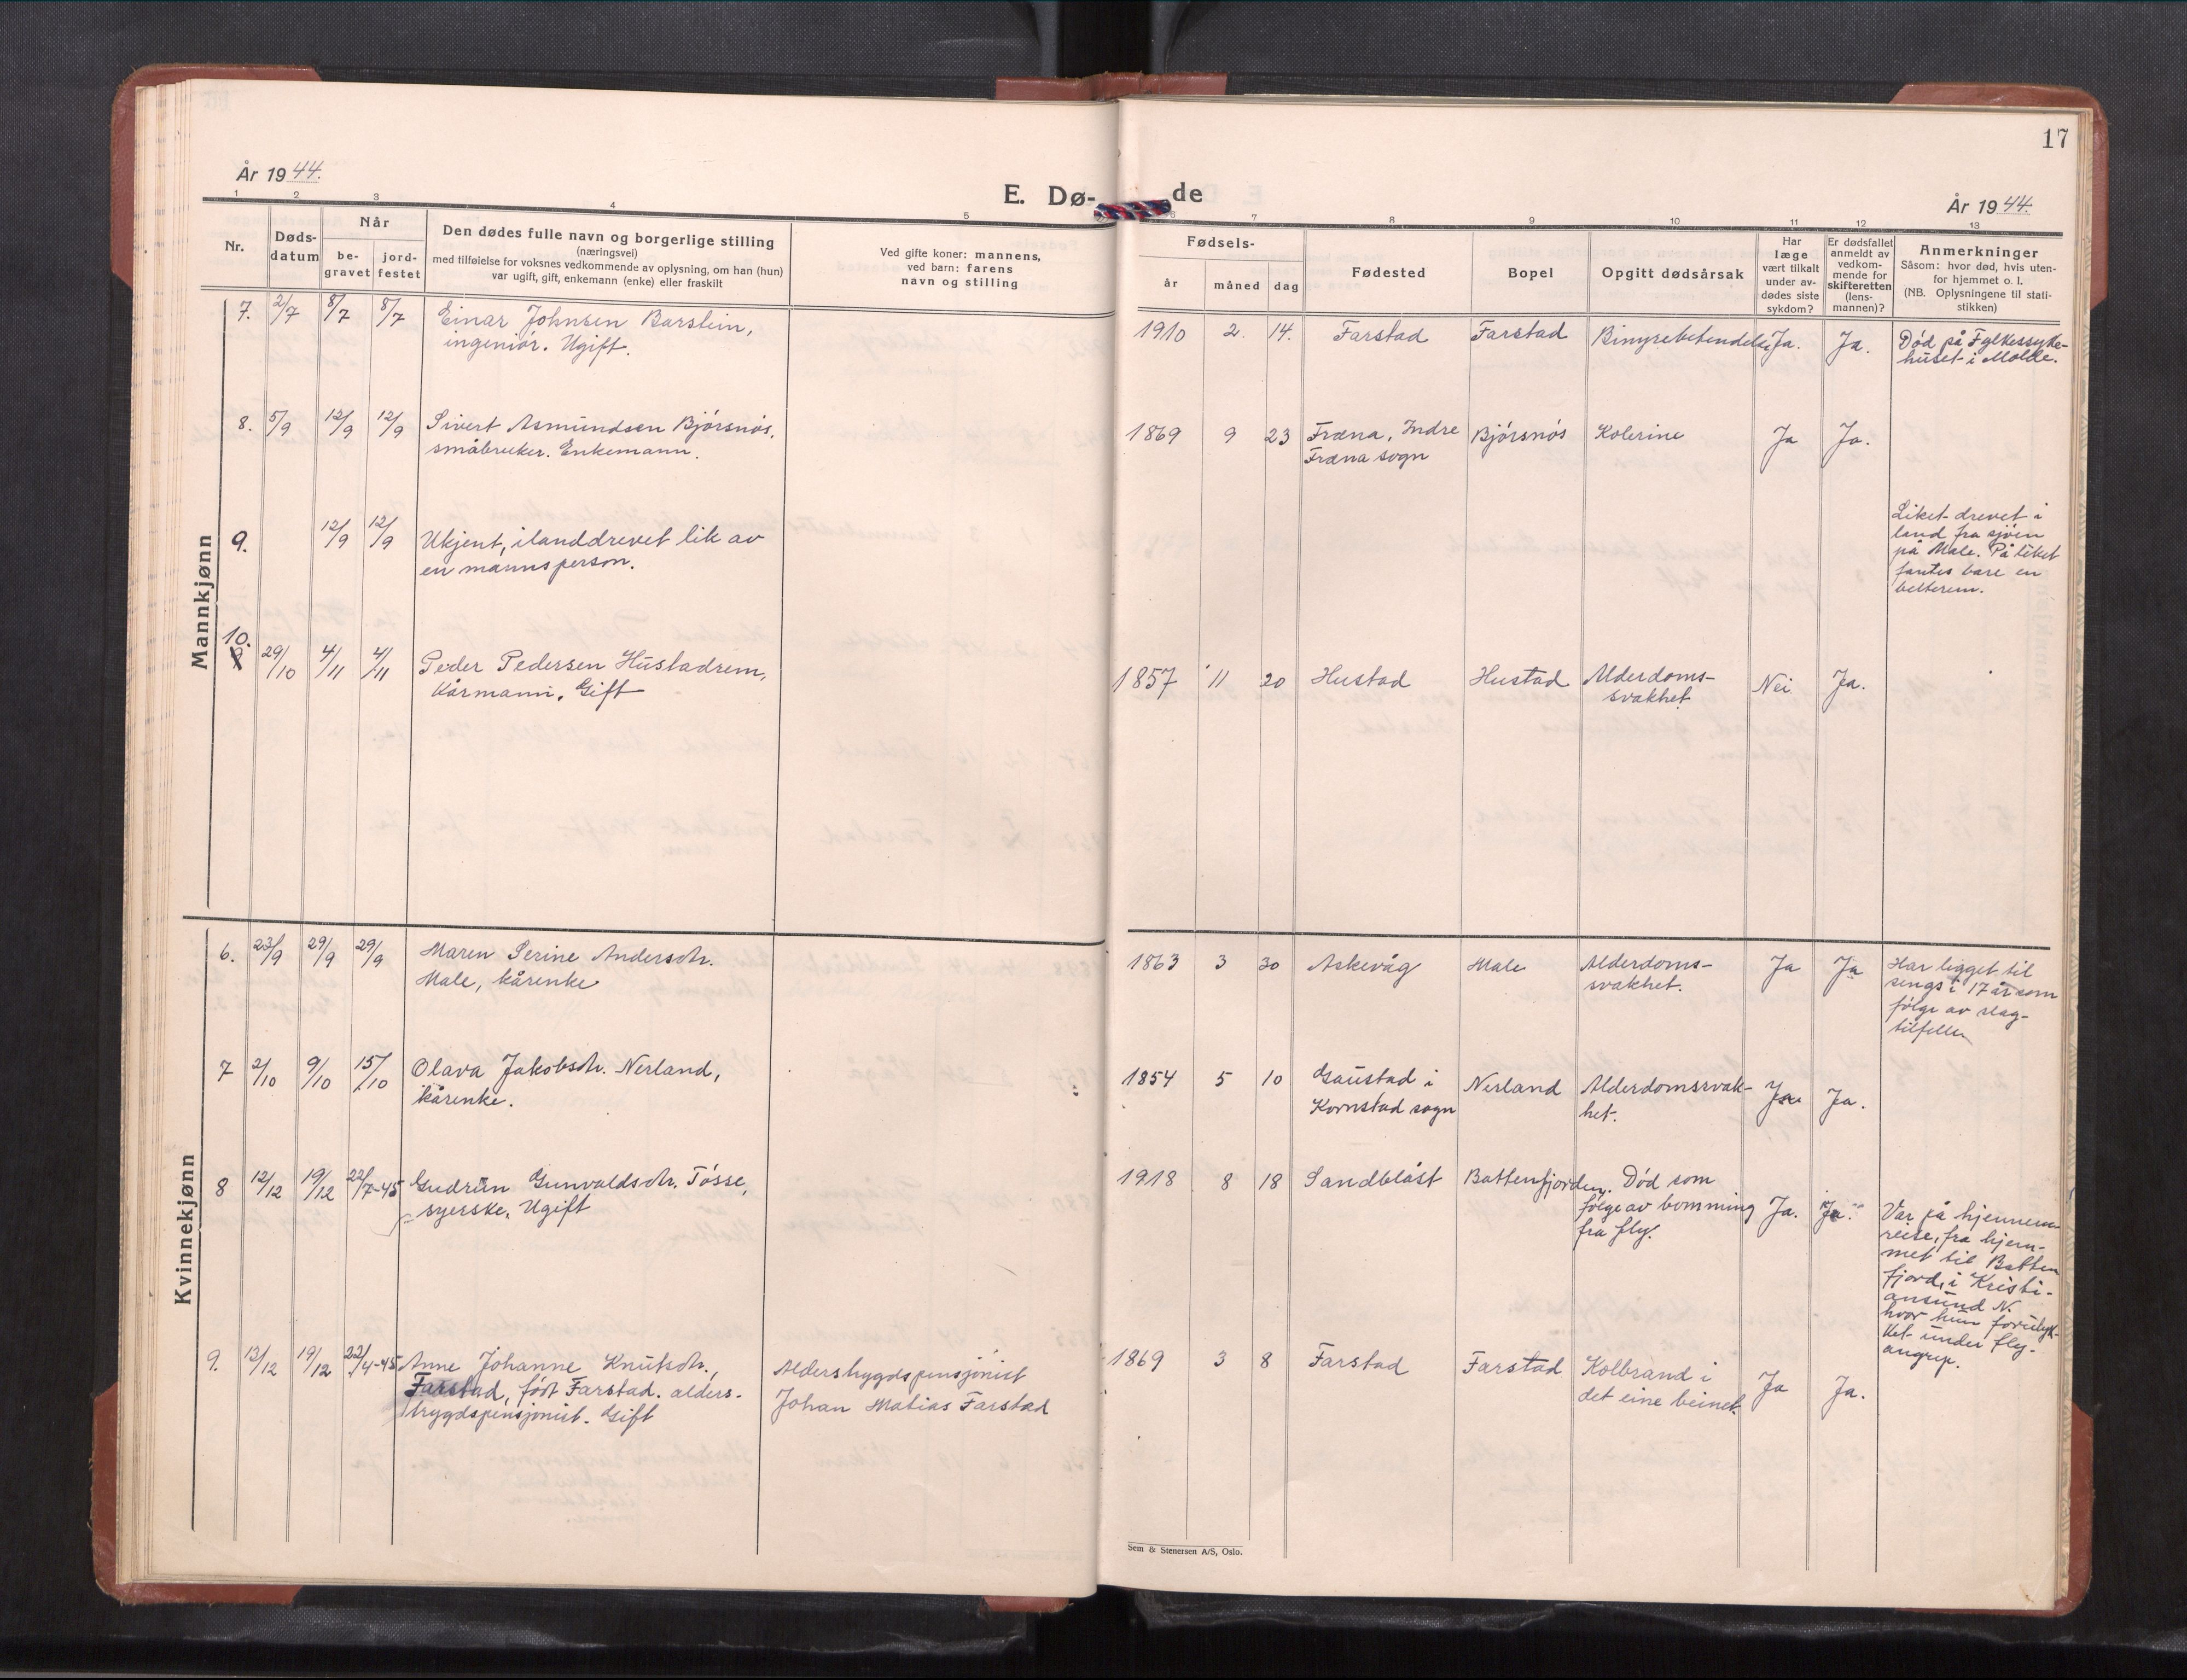 17
År 1944.
E. Dø-
de
År 1944.
1 2 3 4 5 6 7 8 9 10 11 12 13
Nr.
Døds-
datum
Når
be-
gravet
jord-
festet
Den dødes fulle navn og borgerlige stilling
(næringsvei)
med tilføielse for voksnes vedkommende av oplysning, om han (hun)
var ugift, gift, enkemann (enke) eller fraskilt
Ved gifte koner: mannens,
ved barn: farens
navn og stilling
Fødsels-
år måned dag
Fødested
Bopel
Opgitt dødsårsak
Har
læge
vært tilkalt
under av-
dødes siste
sykdom?
Er dødsfallet
anmeldt av
vedkom-
mende for
skifteretten
(lens-
mannen)?
Anmerkninger
Såsom: hvor død, hvis uten-
for hjemmet o. l.
(NB. Oplysningene til stati-
stikken)
Mannkjønn
7. 2/7 8/7 8/7 Einar Johnsen Barstein,
ingeniör. Ugift.
1910 2. 14. Farstad Farstad Binyrebetendelse Ja. Ja.
Död på Fylkessyke-
huset i Molde.
8. 5/9 12/9 12/9 Sivert Asmundsen Björsnös,
småbruker. Enkemann.
1869 9 23 Fræna, Indre
Fræna sogn
Björsnös Kolerine Ja Ja.
9. 12/9 12/9 Ukjent, ilanddrevet lik av
en mannsperson.
Liket drevet i
land fra sjöen
på Male. På liket
fantes bare en
belterem.
10.
9 29/10 4/11 4/11 Peder Pedersen Hustadrem,
Kårmann. Gift
1857 11 20 Hustad Hustad Alderdoms-
svakhet
Nei Ja.
Kvinnekjønn
6. 23/9 29/9 29/9 Maren Serine Andersdtr.
Male, kårenke
1863 3 30 Askevåg Male Alderdoms-
svakhet.
Ja Ja
Har ligget til
sengs i 17 år som
fölge av slag-
tilfelle
7 2/10 9/10 15/10 Olava Jakobsdtr. Nerland,
kårenke.
1854 5 10 Gaustad i
Kornstad sogn
Nerland Alderdomssvak-
het.
Ja. Ja.
8 12/12 19/12 22/7-45 Gudrun Gunvaldsdtr. Tösse,
syerske. Ugift
1918 8 18 Sandblåst Battenfjorden. Död som
fölge av bomming
fra fly.
Ja. Ja.
Var på hjennem-
reise, fra hjem-
met til Batten
fjord, i Kristi-
ansund N.
hvor hun forulyk-
ket under fly-
angrep.
9. 13/12 19/12 22/4-45 Anne Johanne Knutsdtr.,
Farstad, född Farstad. alders-
trygdspensjonist. Gift
Alderstrygdspensjonist
Johan Matias Farstad
1869 3 8 Farstad Farstad Kolbrand i
det eine beinet.
Ja Ja.
Sem & Stenersen A/S, Oslo.